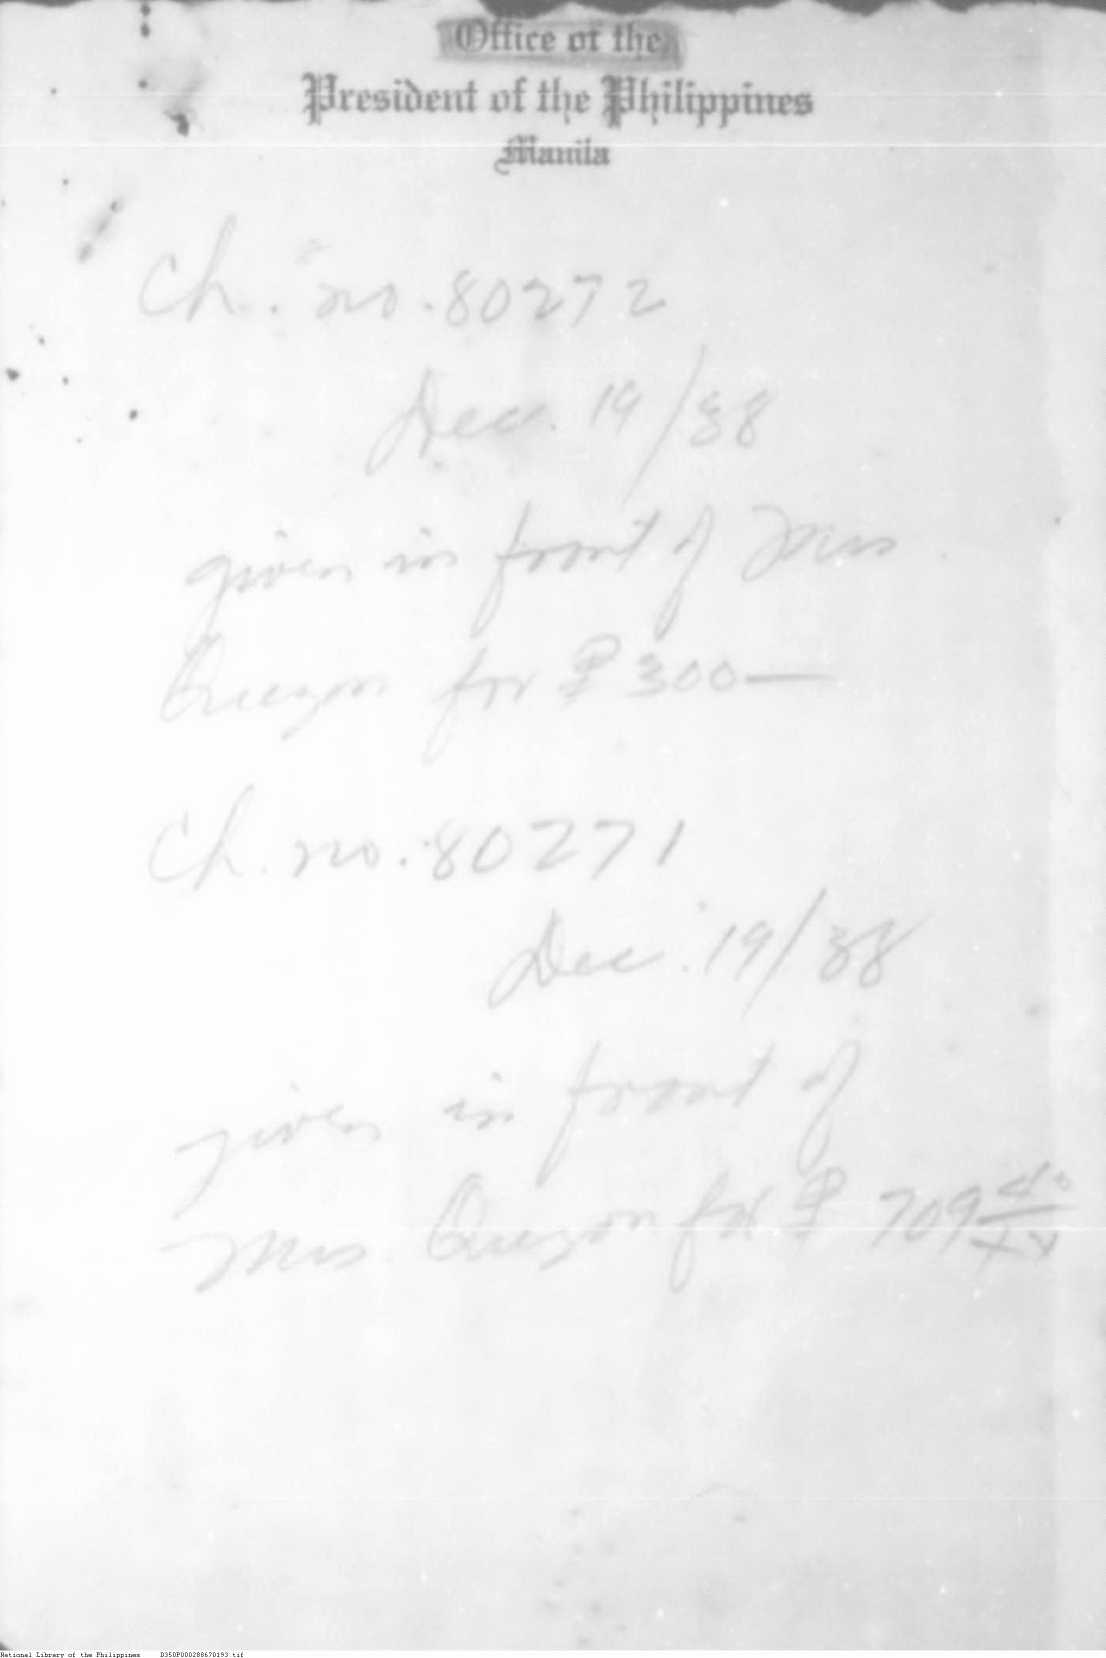 Office of the
President of the Philippines
Manila
Ch. no. 80272
Dec. 19/38
given in front of Mrs
Quezon for ₱ 300—
Ch. no. 80271
Dec. 19/38
given in front of
Mrs. Quezon for ₱ 709
National Library of the Philippines D350P000288670193.tif